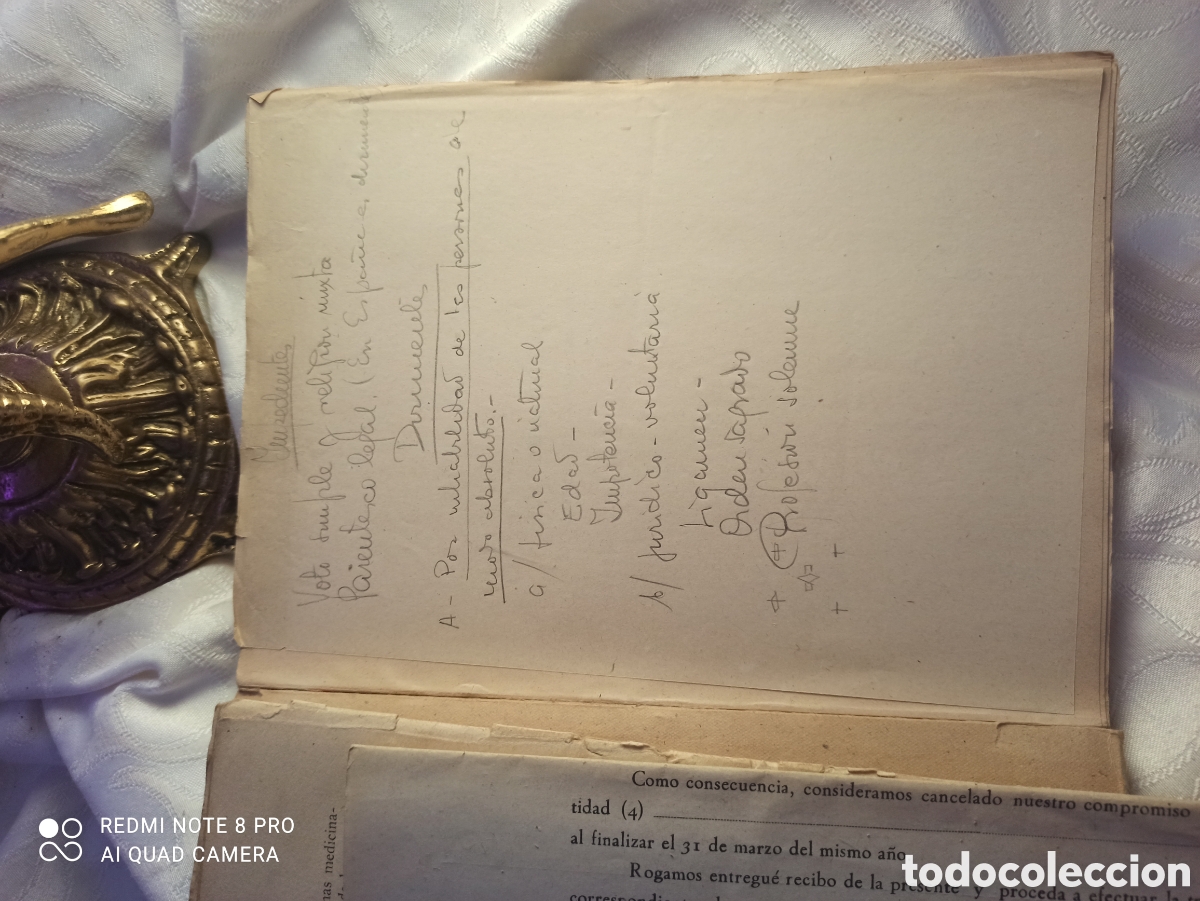 Impedientes
Voto simple y religión mixta
Parentesco legal. (En España es dirimen
Dirimentes
A - Por inhabilidad de las personas de
modo absoluto.-
a/ física o natural
Edad -
Impotencia -
b/ jurídico - voluntaria
Ligamen -
Orden sagrado
Profesión solemne
Como consecuencia, consideramos cancelado nuestro compromiso
tidad (4)
al finalizar el 31 de marzo del mismo año.
Rogamos entregué recibo de la presente y proceda a efectuar la
nas medicina-
REDMI NOTE 8 PRO
AI QUAD CAMERA
todocoleccion